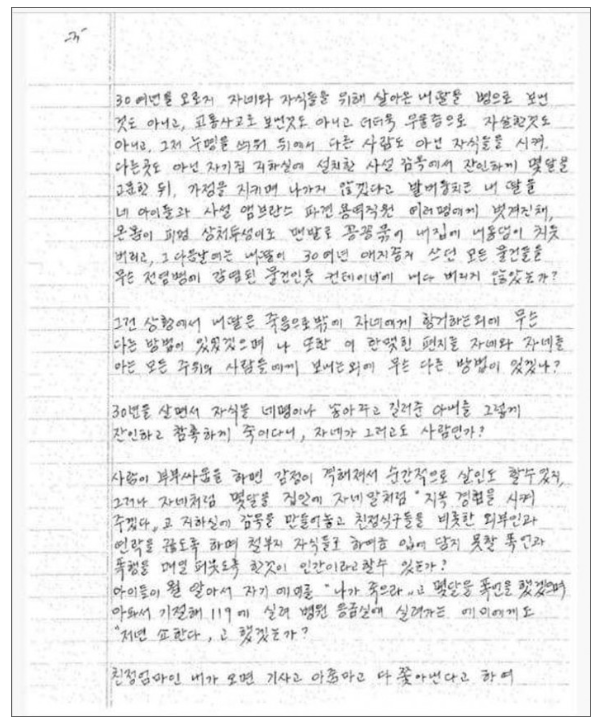 -3-
30여년을 오로지 자네와 자식들을 위해 살아온 내 딸을 병으로 보낸
것도 아니고, 교통사고로 보낸것도 아니고 더더욱 우울증으로 자살한것도
아니고, 그저 누명을 씌워 뒤에서 다른 사람도 아닌 자식들을 시켜,
다른곳도 아닌 자기집 지하실에 설치한 사설 감옥에서 잔인하게 몇달을
고문한 뒤, 가정을 지키며 나가지 않겠다고 발버둥치는 내 딸을
네 아이들과 사설 앰브란스 파견 용역직원 여러명에게 벗겨진채,
온몸이 피멍 상처투성이로 맨발로 꽁꽁묶어 내집에 내동댕이 치듯
버리고, 그 다음날에는 내딸이 30여년 애지중지 쓰던 모든 물건들을
무슨 전염병이 감염된 물건인듯 컨테이너에 내다 버리지 않았는가?
그런 상황에서 내딸은 죽음으로밖에 자네에게 항거하는외에 무슨
다른 방법이 있었겠으며 나 또한 이 한맺힌 편지를 자네와 자네를
아는 모든 주위의 사람들에게 보내는외에 무슨 다른 방법이 있겠나?
30년을 살면서 자식을 네명이나 낳아주고 길러준 아내를 그렇게
잔인하고 참혹하게 죽이다니, 자네가 그러고도 사람인가?
사람이 부부싸움을 하면 감정이 격해져서 순간적으로 살인도 할수있지,
그러나 자네처럼 몇달을 집안에 자네 말처럼 "지옥 경험을 시켜
주겠다"고 지하실에 감옥을 만들어놓고 친정식구들을 비롯한 외부인과
연락을 끊도록 하며 철부지 자식들로 하여금 입에 담지 못할 폭언과
폭행을 매일 퍼붓도록 한것이 인간이라고할수 있는가?
아이들이 뭘 알아서 자기 에미를 "나가 죽으라"고 몇달을 폭언을 했겠으며
아파서 기절해 119에 실려 병원 응급실에 실려가는 에미에게도
"저년 쇼한다"고 했겠는가?
친정엄마인 내가 오면 기사고 아줌마고 다 쫓아낸다고 하여